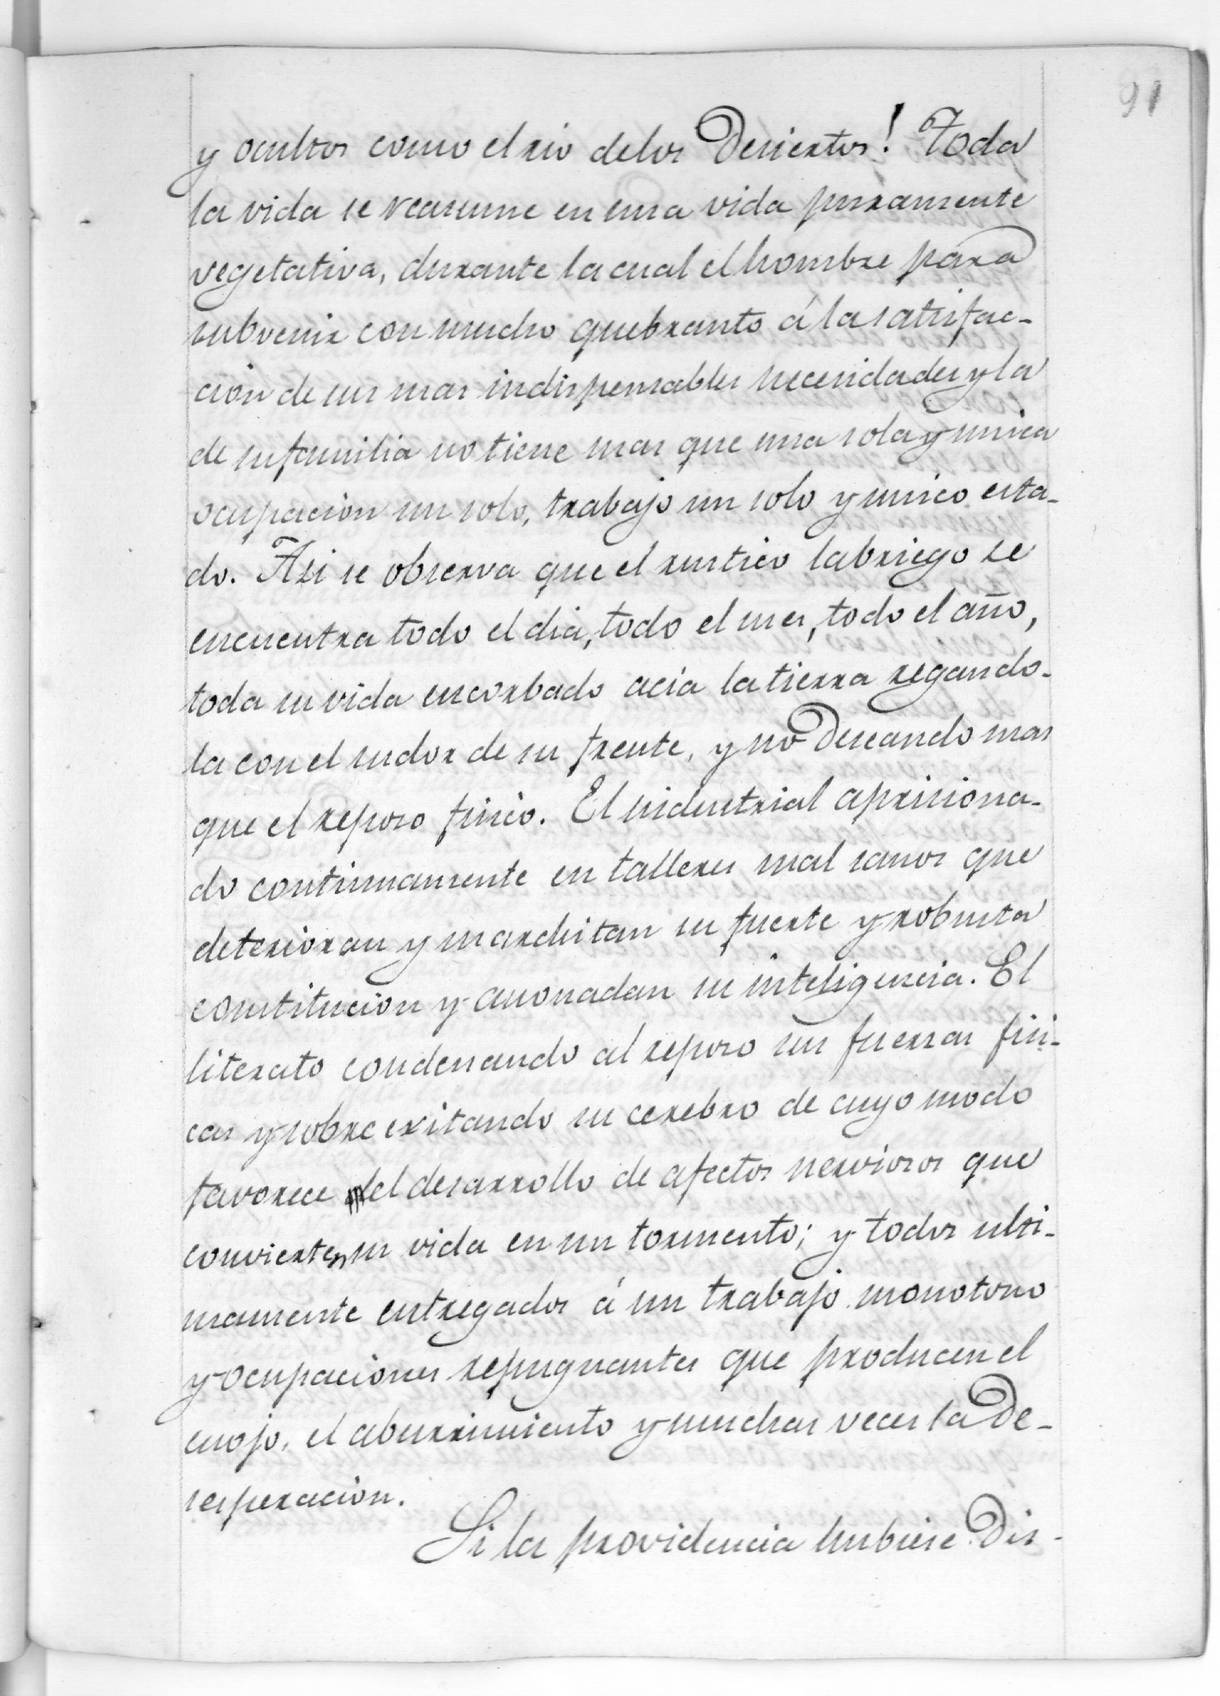 91
y ocultos como el rio de los Desiertos! Toda
la vida se reasume en una vida puramente
vegetativa, durante la cual el hombre para
subvenir con mucho quebranto á la satisfac-
ción de sus mas indispensables necesidades y la
de su familia no tiene mas que una sola y unica
ocupacion un solo, trabajo un solo y unico esta-
do. Asi se observa que el rustico labriego se
encuentra todo el dia, todo el mes, todo el año,
toda su vida encorbado acia la tierra regando-
la con el sudor de su frente, y no Deseando mas
que el reposo fisico. El industrial aprisiona-
do continuamente en talleres mal sanos que
deterioran y marchitan su fuerte y robusta
constitucion y anonadan su inteligencia. El
literato condenando al reposo sus fuerzas fisi-
cas y sobre exitando su cerebro de cuyo modo
favorece el desarrollo de afectos nerviosos que
convierten su vida en un tormento; y todos ulti-
mamente entregados á un trabajo monotono
y ocupaciones repugnantes que producen el
enojo, el aburrimiento y muchas veces la De-
sesperacion.
Si la providencia hubiese Dis-